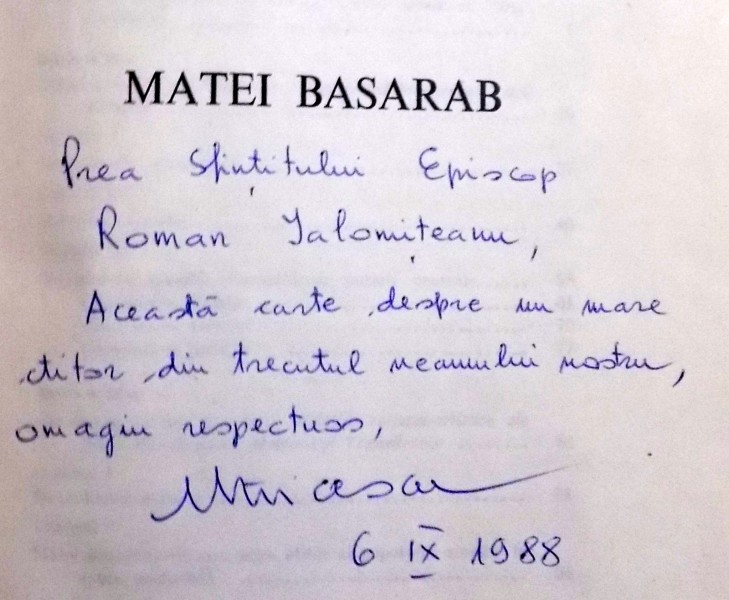 MATEI BASARAB
Prea Sfințitului Episcop
Roman Ialomițeanu,
Această carte despre un mare
ctitor din trecutul neamului nostru,
omagiu respectuos,
6 IX 1988